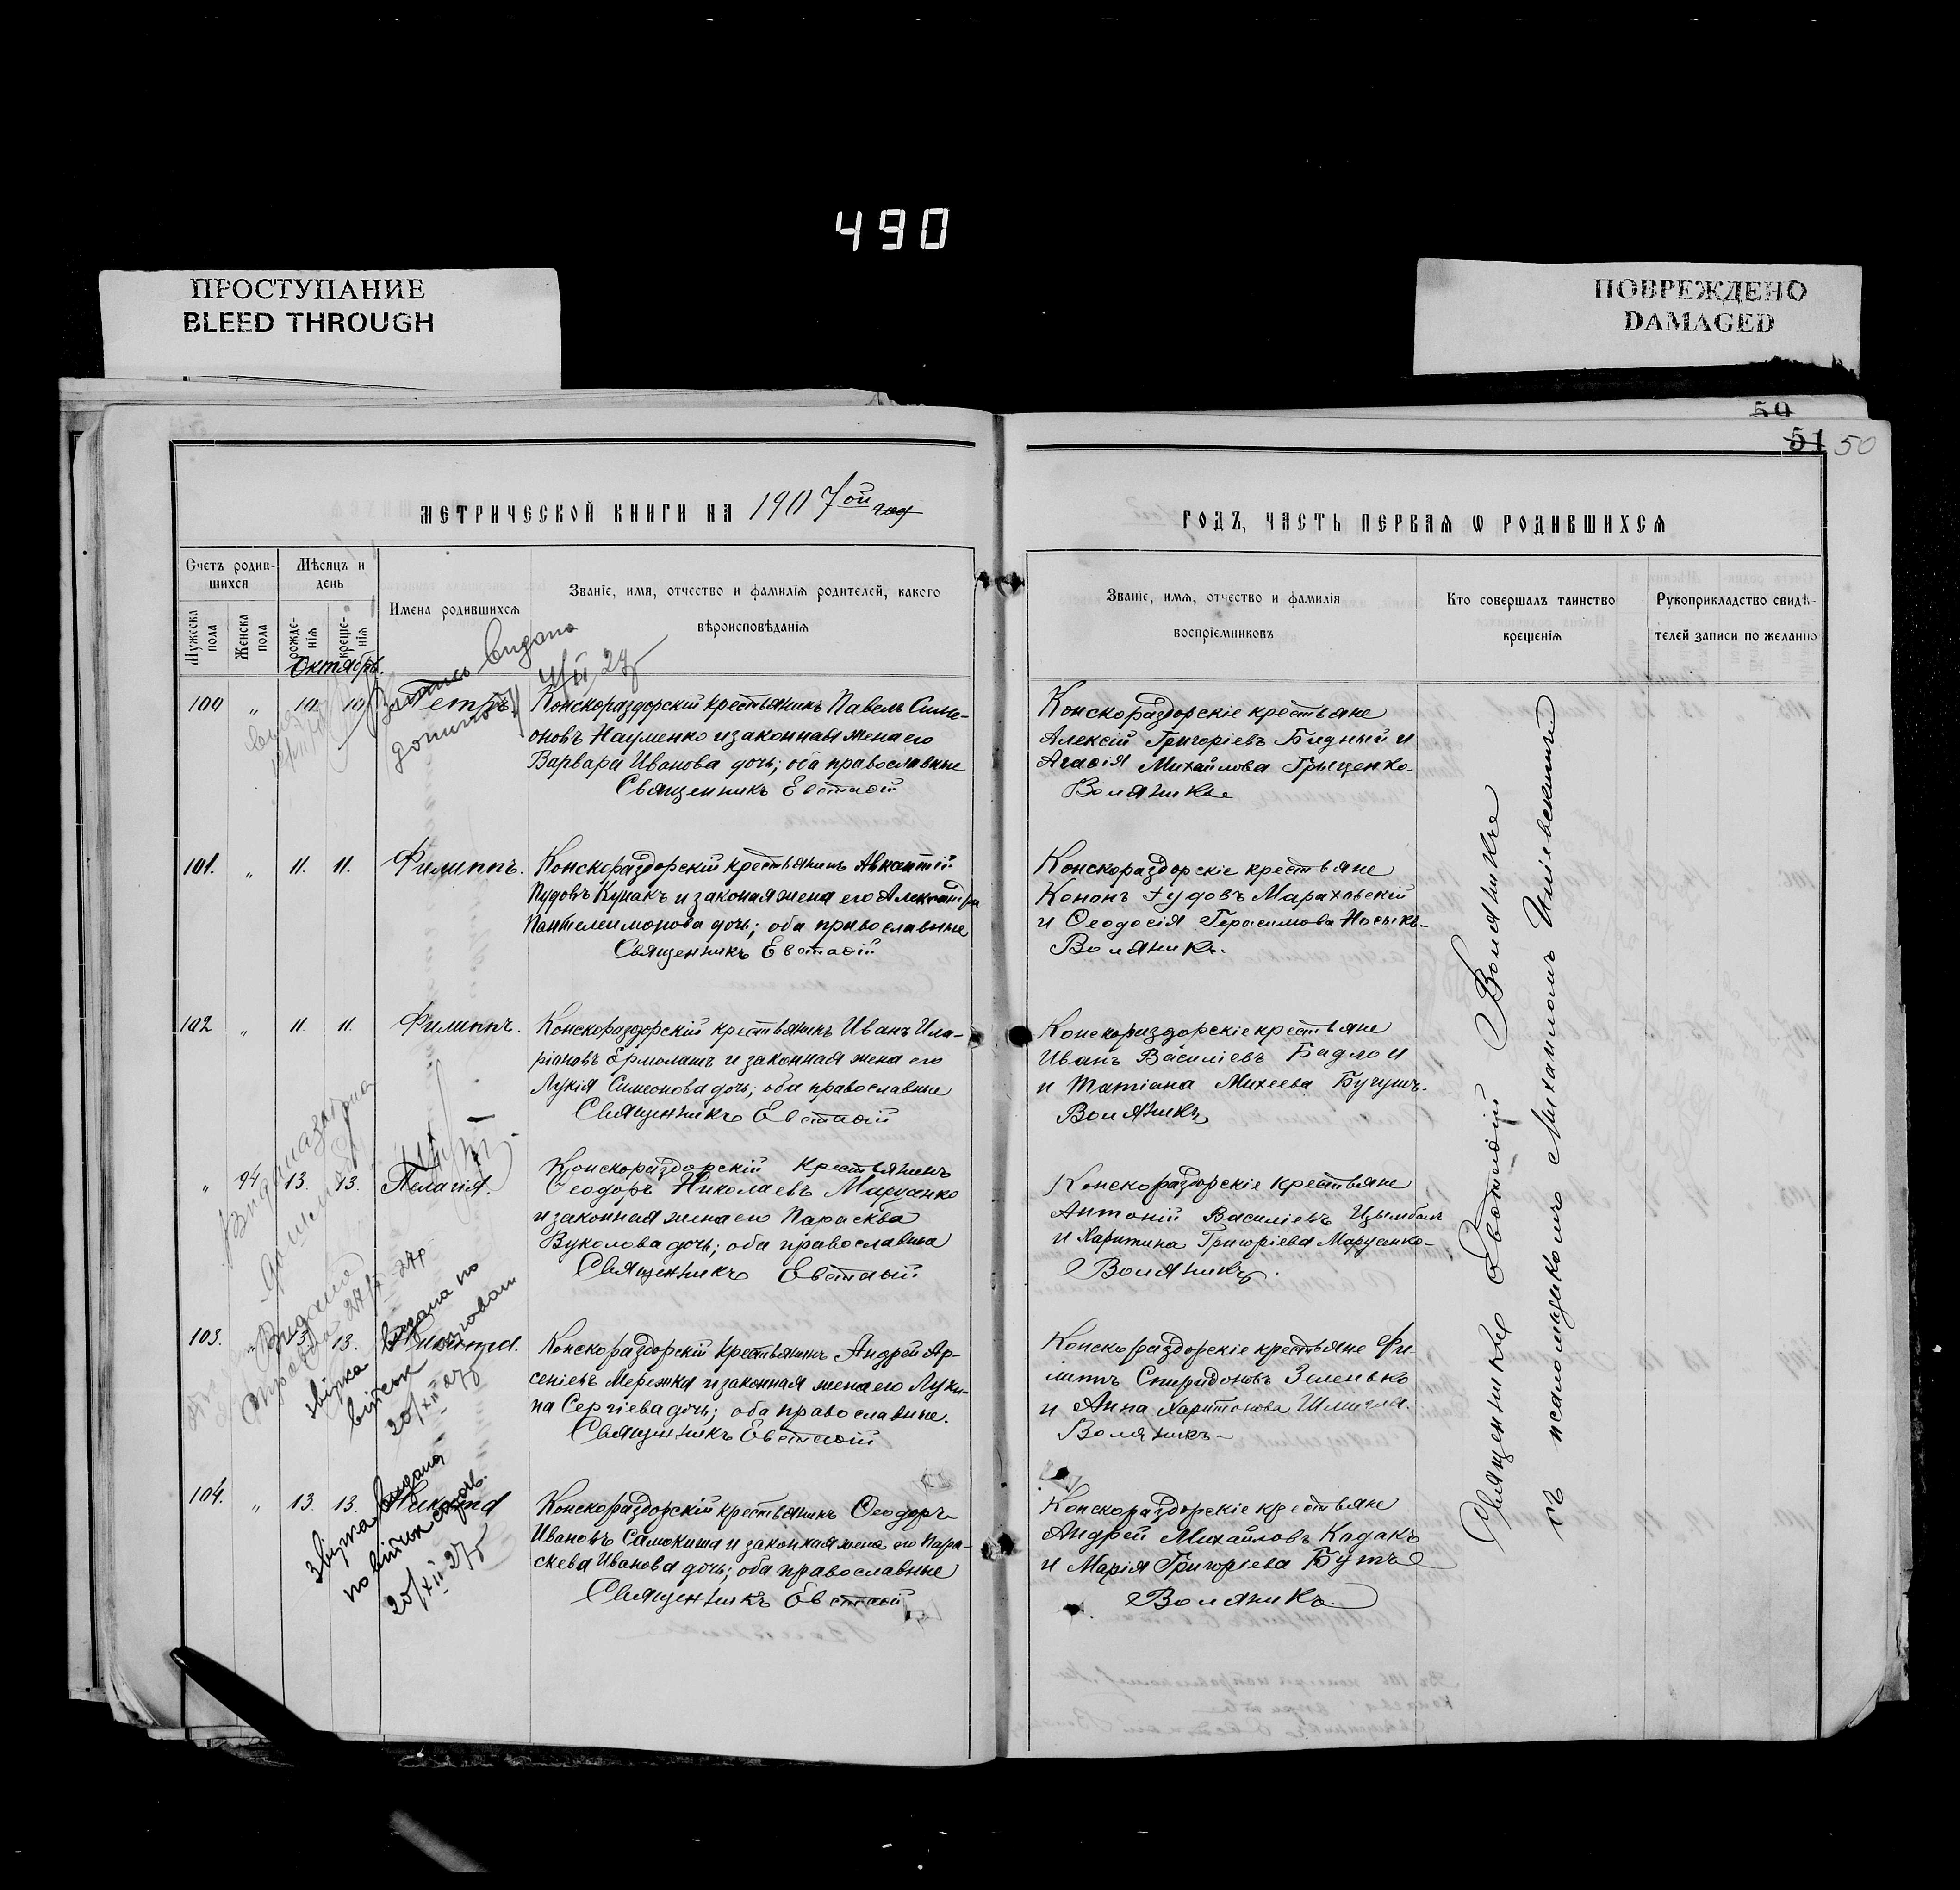 490
ПРОСТУПАНИЕ
BLEED THROUGH
ПОВРЕЖДЕНО
DAMAGED
50
51 50
МЕТРИЧЕСКОЙ КНИГИ НА 1907ой год
ГОДЪ, ЧАСТЬ ПЕРВАЯ Ѡ РОДИВШИХСЯ
Счетъ родив-
шихся
Мѣсяцъ и
день
Мужеска
пола
Женска
пола
рожде-
нія
креще-
нія
Имена родившихся
Званіе, имя, отчество и фамилія родителей, какого
вѣроисповѣданія
Званіе, имя, отчество и фамилія
воспріемниковъ
Кто совершалъ таинство
крещенія
Рукоприкладство свидѣ-
телей записи по желанію
Октябрь.
100 " 10 10 Петръ.
Конскораздорскій крестьянинъ Павелъ Симе-
оновъ Науменко и законная жена его
Варвара Иванова дочь; оба православные
Священникъ Евстаѳій
Конскораздорскіе крестьяне
Алексій Григоріевъ Бидный и
Агаѳія Михайлова Грыценко.
Воляникъ
101. " 11. 11. Филиппъ.
Конскораздорскій крестьянинъ Авксентій
Пудовъ Кунакъ и законая жена его Александра
Пантелеимонова дочь; оба православные
Священникъ Евстаѳій
Конскораздорскіе крестьяне
Кононъ Іудовъ Мараховскій
и Ѳеодосія Герасимова Носыкъ.
Воляникъ.
102 " 11. 11. Филиппъ.
Конскораздорскій крестьянинъ Иванъ Ила-
ріоновъ Ермолашъ и законная жена его
Лукія Симеонова дочь; оба православные
Священникъ Евстаѳій
Конскораздорскіе крестьяне
Иванъ Василіевъ Бадло и
и Татіана Михеева Бугушъ.
Воляникъ
" 94 13. 13. Пелагія.
Конскораздорскій крестьянинъ
Ѳеодоръ Николаевъ Марусенко
и законная жена его Парасква
Вуколова дочь; оба православны
Священникъ Евстаѳій
Конскораздорскіе крестьяне
Антоній Василіевъ Цымбалъ
и Харитина Григоріева Марусенко
Воляникъ.
103. " 13. 13. Никита.
Конскораздорскій крестьянинъ Андрей Ар-
сеніевъ Мережка и законная жена его Луки-
на Сергіева дочь; оба православные.
Священникъ Евстаѳій
Конскораздорскіе крестьяне Фи-
липъ Спиридоновъ Зеленько
и Анна Харитонова Шлигла.
Воляникъ
звірка видана по
військ
20/XII 27р
104. " 13. 13. Никита
Конскораздорскій крестьянинъ Ѳеодоръ
Ивановъ Самокиша и законная жена его Пара-
скева Иванова дочь; оба православные
Священникъ Евстаѳій
Конскораздорскіе крестьяне
Андрей Михайловъ Кадакъ
и Марія Григоріева Бутъ
Воляникъ.
звірка видана
по військ справ.
20/XII 27р
Священникъ Евстаѳій Воляникъ
съ псаломщикомъ Михаиломъ